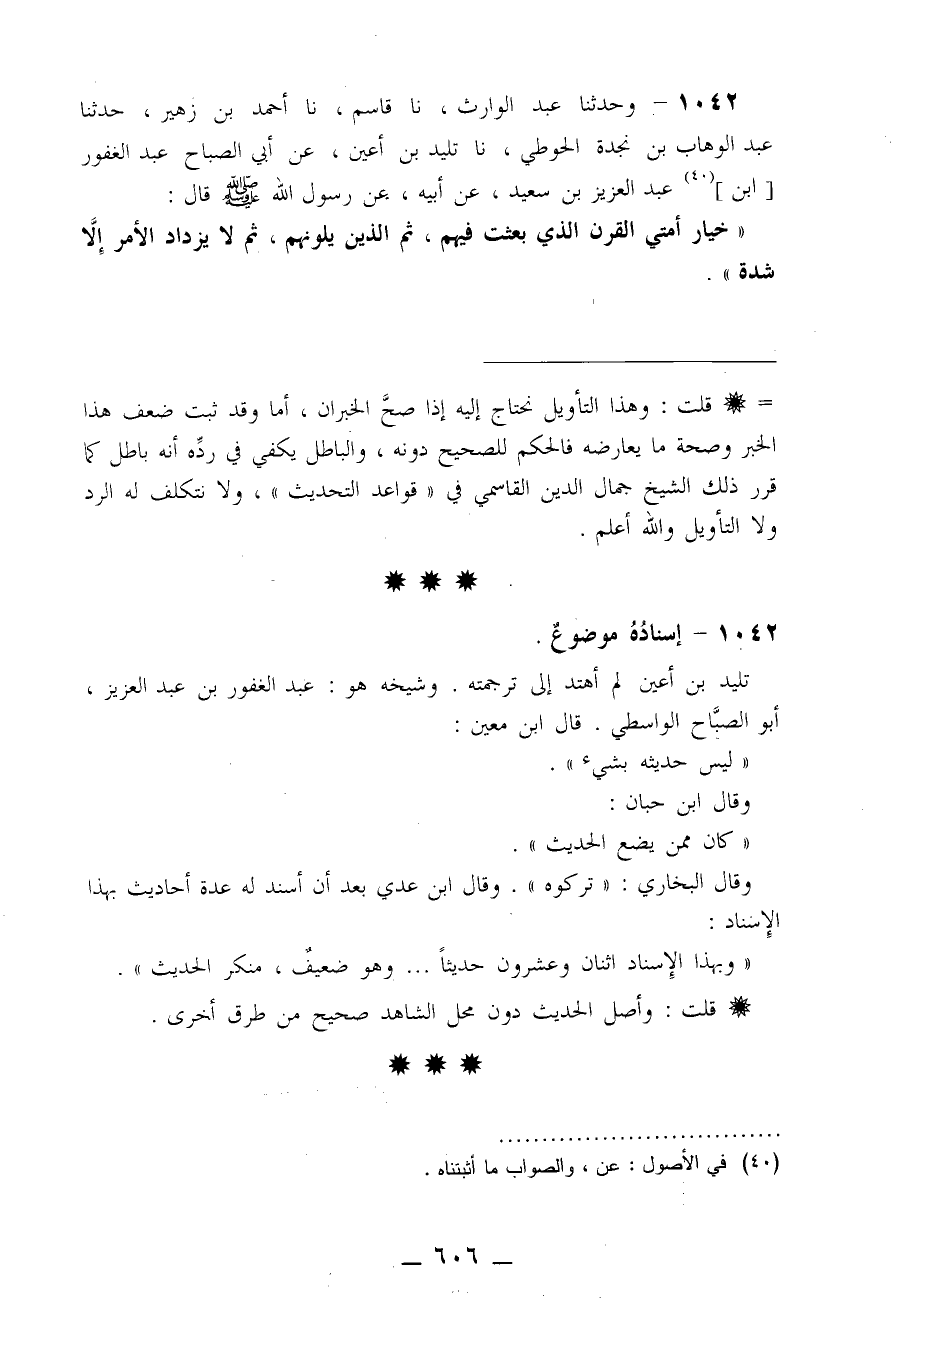 ١٠٤٢ – وحدثنا عبد الوارث ، نا قاسم ، نا أحمد بن زهير ، حدثنا
عبد الوهاب بن نجدة الحوطي ، نا تليد بن أعين ، عن أبي الصباح عبد الغفور
[ ابن ](٤٠) عبد العزيز بن سعيد ، عن أبيه ، عن رسول الله ﷺ قال :
« خيار أمتي القرن الذي بعثت فيهم ، ثم الذين يلونهم ، ثم لا يزداد الأمر إلَّا
شدة » .
= ✹ قلت : وهذا التأويل نحتاج إليه إذا صحَّ الخبران ، أما وقد ثبت ضعف هذا
الخبر وصحة ما يعارضه فالحكم للصحيح دونه ، والباطل يكفي في ردِّه أنه باطل كما
قرر ذلك الشيخ جمال الدين القاسمي في « قواعد التحديث » ، ولا نتكلف له الرد
ولا التأويل والله أعلم .
✹ ✹ ✹
١٠٤٢ – إسنادُهُ موضوعٌ .
تليد بن أعين لم أهتد إلى ترجمته . وشيخه هو : عبد الغفور بن عبد العزيز ،
أبو الصبَّاح الواسطي . قال ابن معين :
« ليس حديثه بشيء » .
وقال ابن حبان :
« كان ممن يضع الحديث » .
وقال البخاري : « تركوه » . وقال ابن عدي بعد أن أسند له عدة أحاديث بهذا
الإسناد :
« وبهذا الإسناد اثنان وعشرون حديثاً ... وهو ضعيفٌ ، منكر الحديث » .
✹ قلت : وأصل الحديث دون محل الشاهد صحيح من طرق أخرى .
✹ ✹ ✹
(٤٠) في الأصول : عن ، والصواب ما أثبتناه .
– ٦٠٦ –